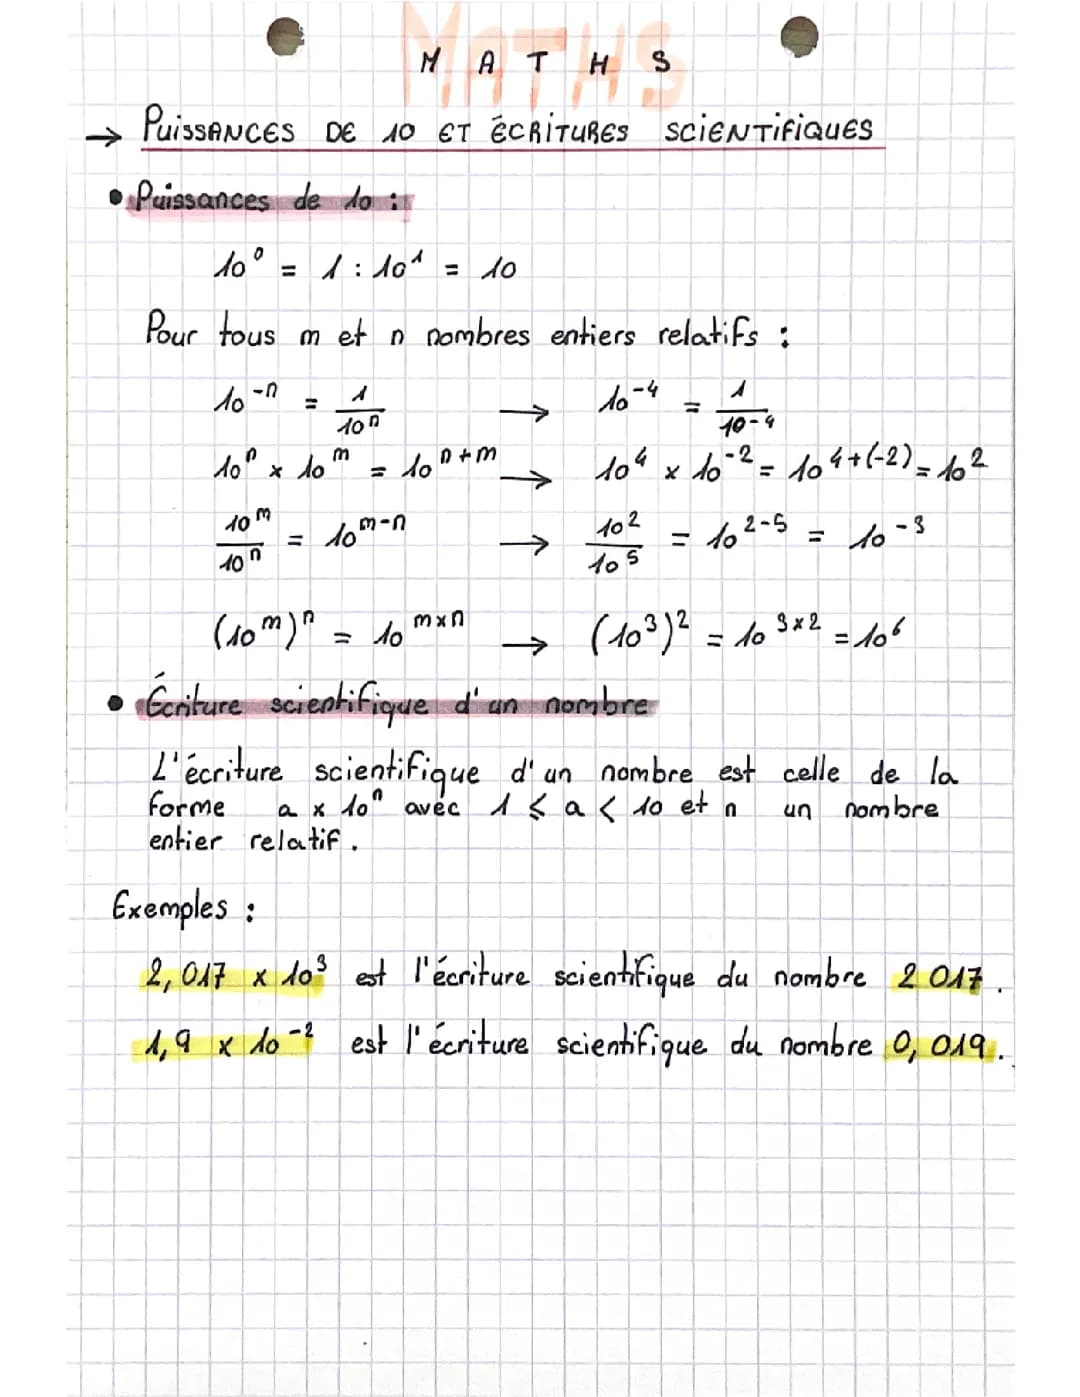 MATHS
M A T H S
→ PUISSANCES DE 10 ET ÉCRITURES SCIENTIFIQUES
• Puissances de 10 :
10⁰ = 1 : 10¹ = 10
Pour tous m et n nombres entiers relatifs :
10⁻ⁿ = 1/10ⁿ → 10⁻⁴ = 1/10⁻⁴
10ⁿ × 10ᵐ = 10ⁿ⁺ᵐ → 10⁴ × 10⁻² = 10⁴⁺⁽⁻²⁾ = 10²
10ᵐ/10ⁿ = 10ᵐ⁻ⁿ → 10²/10⁵ = 10²⁻⁵ = 10⁻³
(10ᵐ)ⁿ = 10ᵐˣⁿ → (10³)² = 10³ˣ² = 10⁶
• Écriture scientifique d'un nombre
L'écriture scientifique d'un nombre est celle de la
forme a × 10ⁿ avec 1 ≤ a < 10 et n un nombre
entier relatif.
Exemples :
2,017 × 10³ est l'écriture scientifique du nombre 2 017.
1,9 × 10⁻² est l'écriture scientifique du nombre 0,019.